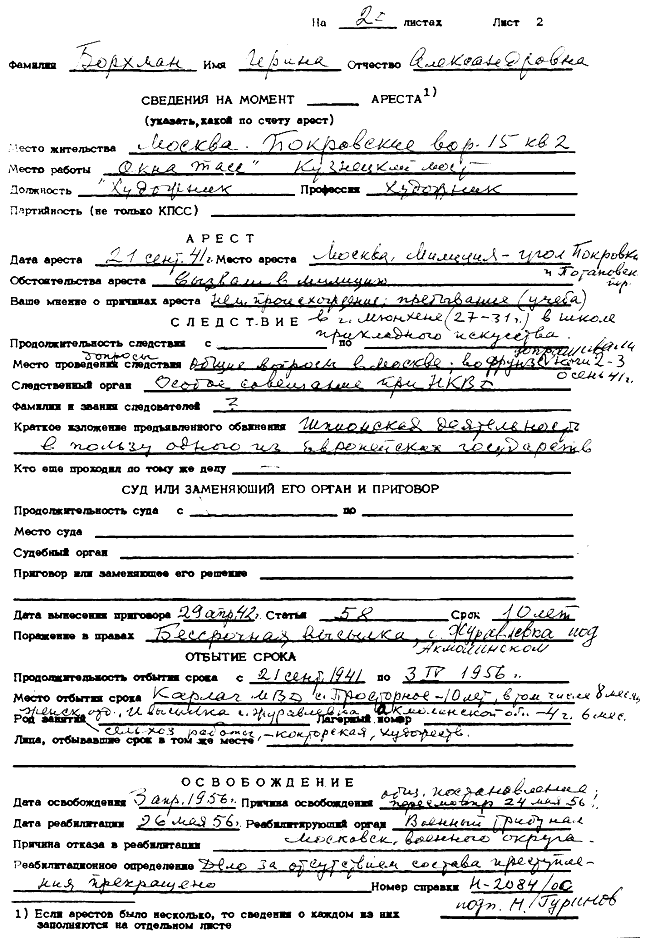 На 2х листах Лист 2
Фамилия Борхман Имя Герина Отчество Александровна
СВЕДЕНИЯ НА МОМЕНТ АРЕСТА1)
(указать, какой по счету арест)
Место жительства Москва. Покровские вор. 15 кв 2
Место работы "Окна Тасс" Кузнецкий мост
Должность "Художник Профессия Художник
Партийность (не только КПСС)
АРЕСТ
Дата ареста 21 сент. 41 г. Место ареста Москва, Милиция - угол Покровки
и Потаповск. пер.
Обстоятельства ареста Вызвали в милицию
Ваше мнение о причинах ареста нем. происхождение; пребывание (учеба)
в г. Мюнхене (27-31 г.) в школе
СЛЕДСТВИЕ
прикладного искусства.
Продолжительность следствия с по
допросы допрашивали
Место проведения следствия общие вопросы в Москве; во Фрунзе ночи 2-3
осень 41 г.
Следственный орган Особое совещание при НКВД
Фамилии и звания следователей ?
Краткое изложение предъявленного обвинения Шпионская деятельность
в пользу одного из Европейских государств
Кто еще проходил по тому же делу —
СУД ИЛИ ЗАМЕНЯЮШИЙ ЕГО ОРГАН И ПРИГОВОР
Продолжительность суда с по
Место суда
Судебный орган
Приговор или заменяющее его решение
Дата вынесения приговора 29 апр. 42 г. Статья 58 Срок 10 лет
Поражение в правах Бессрочная высылка, с. Журавлевка под
Акмолинском
ОТБЫТИЕ СРОКА
Продолжительность отбытия срока с 21 сент 1941 по 3 IV 1956 г.
Место отбытия срока Карлаг МВД с. Просторное - 10 лет, в том числе 8 месяц
Род занятий и высылка с. Журавлевка Акмолинской обл. - 4 г. 6 мес. Лагерный номер
сельхоз работы, - конторская, художеств.
Лица, отбывавшие срок в том же месте
ОСВОБОЖДЕНИЕ
постановление;
Дата освобождения 3 апр. 1956 г. Причина освобождения пересмотр 24 мая 56 г.
Дата реабилитации 26 мая 56 г. Реабилитирующий орган Военный Трибунал
Московск. военного округа.
Причина отказа в реабилитации
Реабилитационное определение Дело за отсутствием состава преступле-
ния прекращено Номер справки Н-2084/ос
подп. Н. Гуринов
1) Если арестов было несколько, то сведения о каждом из них
заполняются на отдельном листе